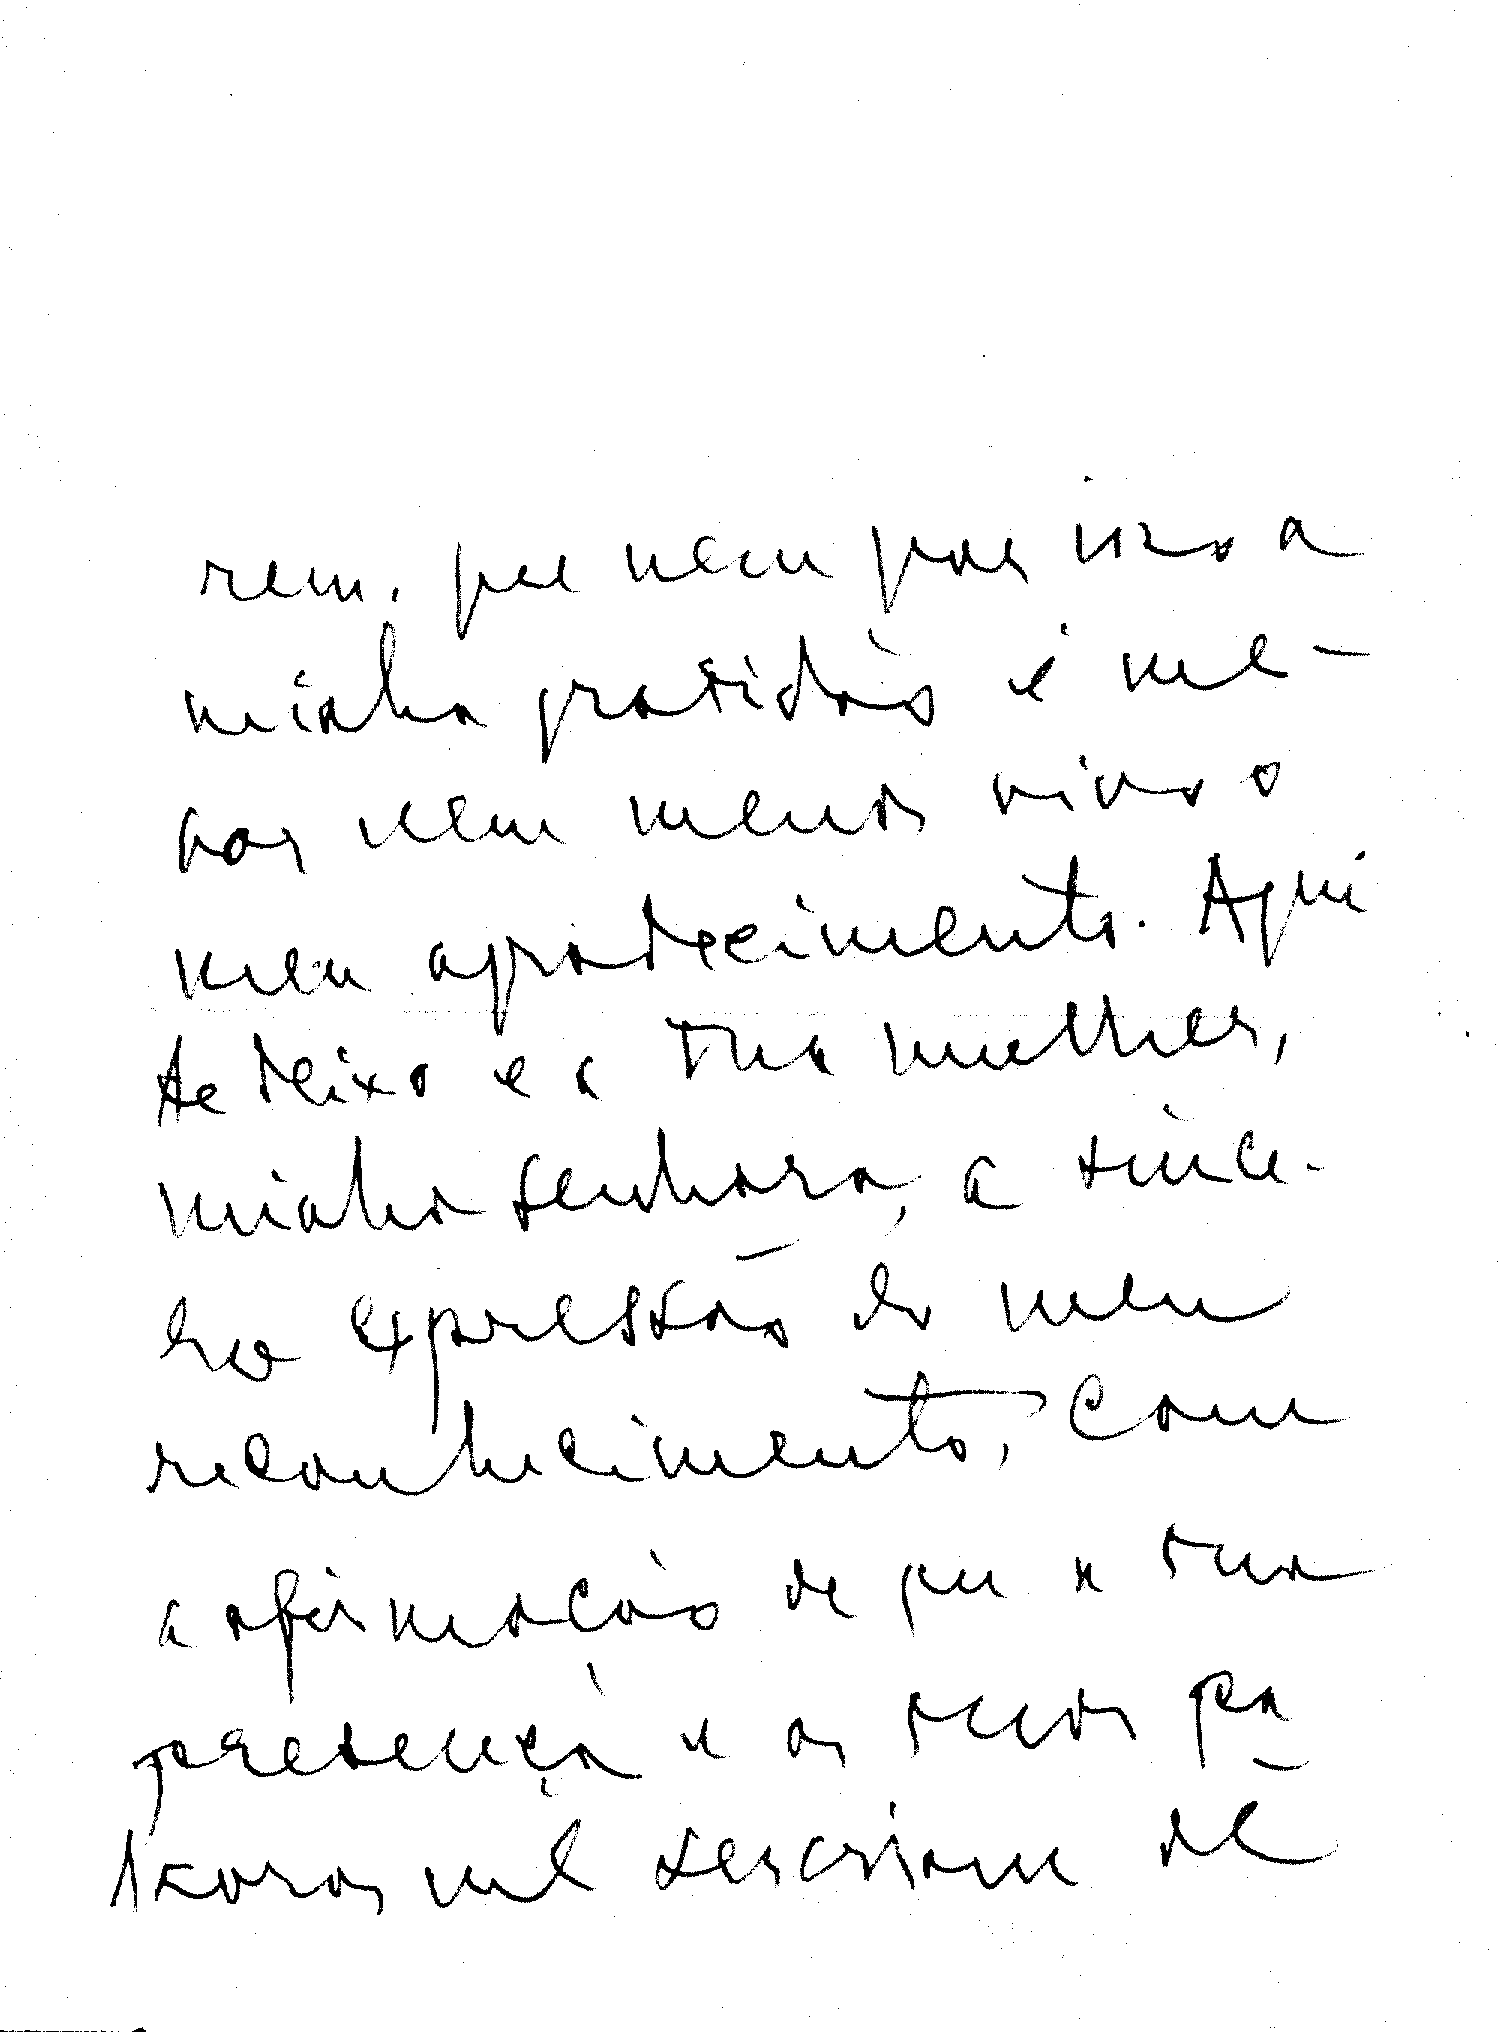 rem, que nem por isso a
minha gratidão é me-
nor nem menos vivo o
meu agradecimento. Aqui
te deixo e a tua mulher,
minha senhora, a since-
ra expressão do meu
reconhecimento, com
a afirmação de que a tua
presença e as tuas pa
lavras me serviram de